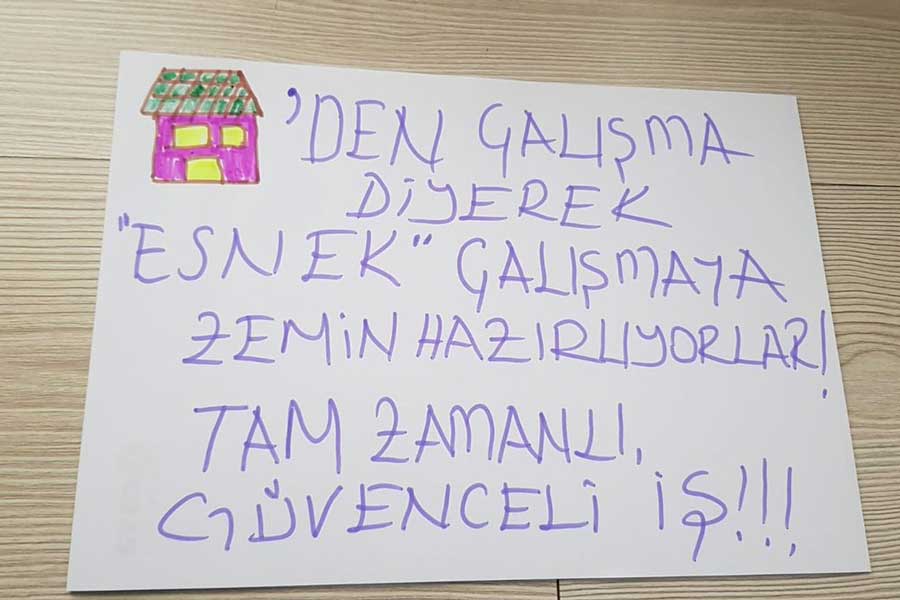 'DEN ÇALIŞMA
DİYEREK
"ESNEK" ÇALIŞMAYA
ZEMİN HAZIRLIYORLAR!
TAM ZAMANLI,
GÜVENCELİ İŞ!!!